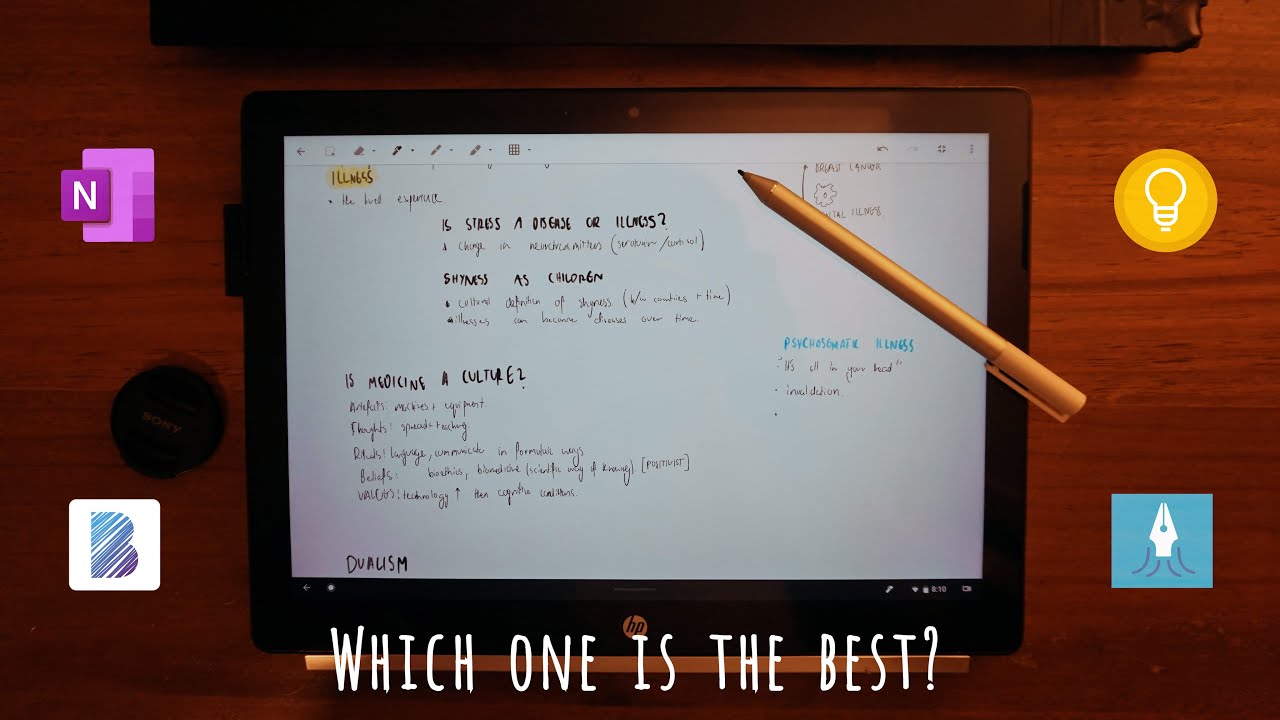 N
BREAST CANCER
ILLNESS
MENTAL ILLNESS
• the lived experience
IS STRESS A DISEASE OR ILLNESS?
change in neurotransmitters (serotonin/cortisol)
SHYNESS AS CHILDREN
• cultural definition of shyness (b/w countries + time)
illnesses can become diseases over time.
PSYCHOSOMATIC ILLNESS
· "It's all in your head"
· invalidation.
IS MEDICINE A CULTURE?
Artefacts: machines + equipment.
Thoughts: spread + teaching
Rituals: language, communicate in formulaic ways
Beliefs: bioethics, biomedicine (scientific way of knowing) [POSITIVIST]
VALUES: technology ↑ then cognitive conditions.
SONY
B
DUALISM
8:10
hp
WHICH ONE IS THE BEST?